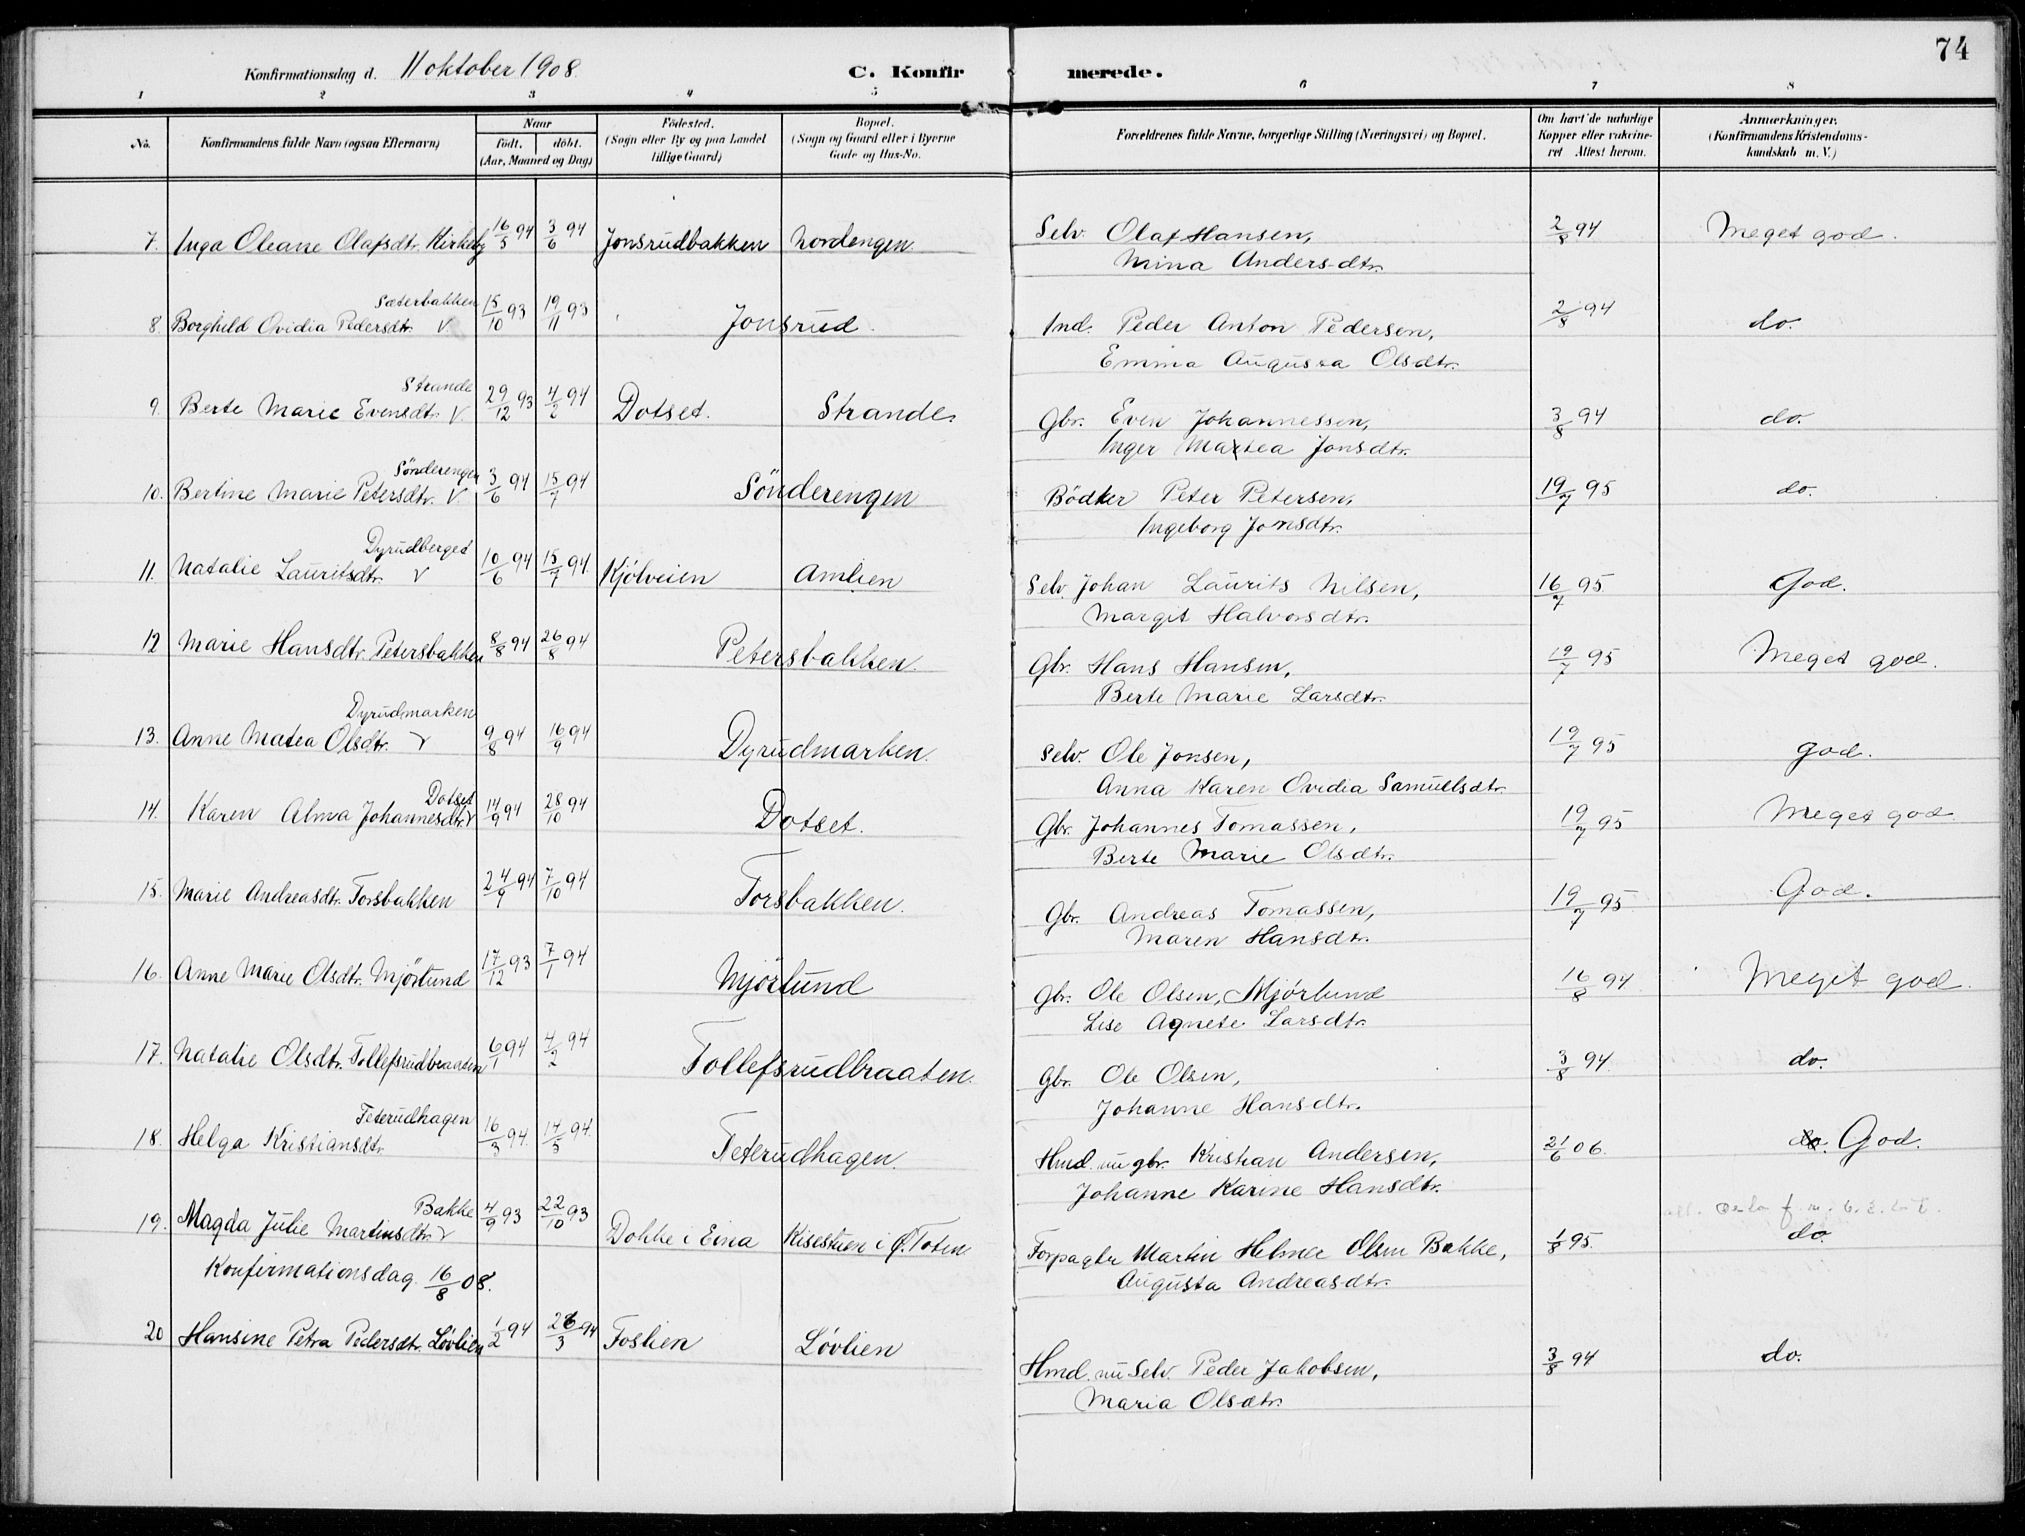 Konfirmationsdag d. 11 oktober 1908. C. Konfirmerede. 74
1 2 3 4 5 6 7 8
No. Konfirmandens fulde Navn (ogsaa Efternavn) Naar født. døbt. (Aar, Maaned og Dag) Fødested. (Sogn eller By og paa Landet tillige Gaard) Bopæl. (Sogn og Gaard eller i Byerne Gade og Hus-No. Forældrenes fulde Navne, borgerlige Stilling (Næringsvei) og Bopæl. Om havt de naturlige Kopper eller vakcineret Attest herom. Anmærkninger. (Konfirmandens Kristendomskundskab m. V.)
7. Inga Oleane Olafsdtr. Kirkeby 16/5 94 3/6 94 Jonsrudbakken Nordengen. Selv. Olaf Hansen, 2/8 94 Meget god.
Mina Andersdtr.
Sæterbakken
8. Borghild Ovidia Pedersdtr. V. 15/10 93 19/11 93 Jonsrud. Ind. Peder Anton Pedersen, 2/8 94 do.
Emma Augusta Olsdtr.
Strande
9. Berte Marie Evensdtr. V. 29/12 93 4/2 94 Dotset. Strande. Gbr. Even Johannessen, 3/8 94 do.
Inger Martea Jonsdtr.
Sönderengen
10. Bertine Marie Petersdtr. V. 3/6 94 15/7 94 Sönderengen Bödker Peter Petersen, 19/7 95 do.
Ingeborg Jonsdtr.
Dyrudberget
11. Natalie Lauritsdtr. V 10/6 94 15/7 94. Kjölveien Amlien Selv. Johan Laurits Nilsen, 16/7 95 God.
Margit Halvorsdtr.
12 Marie Hansdtr. Petersbakken 8/8 94 26/8 94 Petersbakken. Gbr. Hans Hansen, 19/7 95 Meget god.
Berte Marie Larsdtr.
Dyrudmarken
13. Anne Matea Olsdtr. V 9/8 94 16/9 94 Dyrudmarken. Selv. Ole Jonsen, 19/7 95 god.
Anna Karen Ovidia Samuelsdtr.
Dotset
14. Karen Alma Johannesdtr. V 14/9 94 28/10 94 Dotset. Gbr. Johannes Tomassen, 19/7 95 Meget god.
Berte Marie Olsdtr.
15. Marie Andreasdtr. Torsbakken 24/9 94 7/10 94 Torsbakken. Gbr. Andreas Tomassen, 19/7 95 God.
Maren Hansdtr.
16. Anne Marie Olsdtr. Mjörlund 17/12 93 7/1 94 Mjörlund Gbr. Ole Olsen, Mjörlund 16/8 94 Meget god.
Lise Agnete Larsdtr.
17. Natalie Olsdtr. Tollefsrudbraaten 6/1 94 4/2 94 Tollefsrudbraaten. Gbr. Ole Olsen, 3/8 94. do.
Johanne Hansdtr.
Teterudhagen
18. Helga Kristiansdtr. 16/3 94. 14/5 94. Teterudhagen. Hmd. nu gbr. Kristian Andersen, 21/6 06. do. God.
Johanne Karine Hansdtr.
Bakke
19. Magda Julie Martinsdtr. V 4/9 93 22/10 93 Dokke i Eina Kiseslien i Ø. Toten Forpagter Martin Helmer Olsen Bakke, 1/8 95. do.
Konfirmationsdag 16/8 08. Augusta Andreasdtr.
20 Hansine Petra Pedersdtr. Løvlien 1/2 94 26/3 94 Foslien Løvlien Hmd. nu Selv. Peder Jakobsen, 3/8 94 do.
Maria Olsdtr.